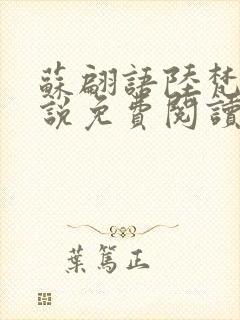 蘇翩語陸梵
說免費閱讀
葉篤正